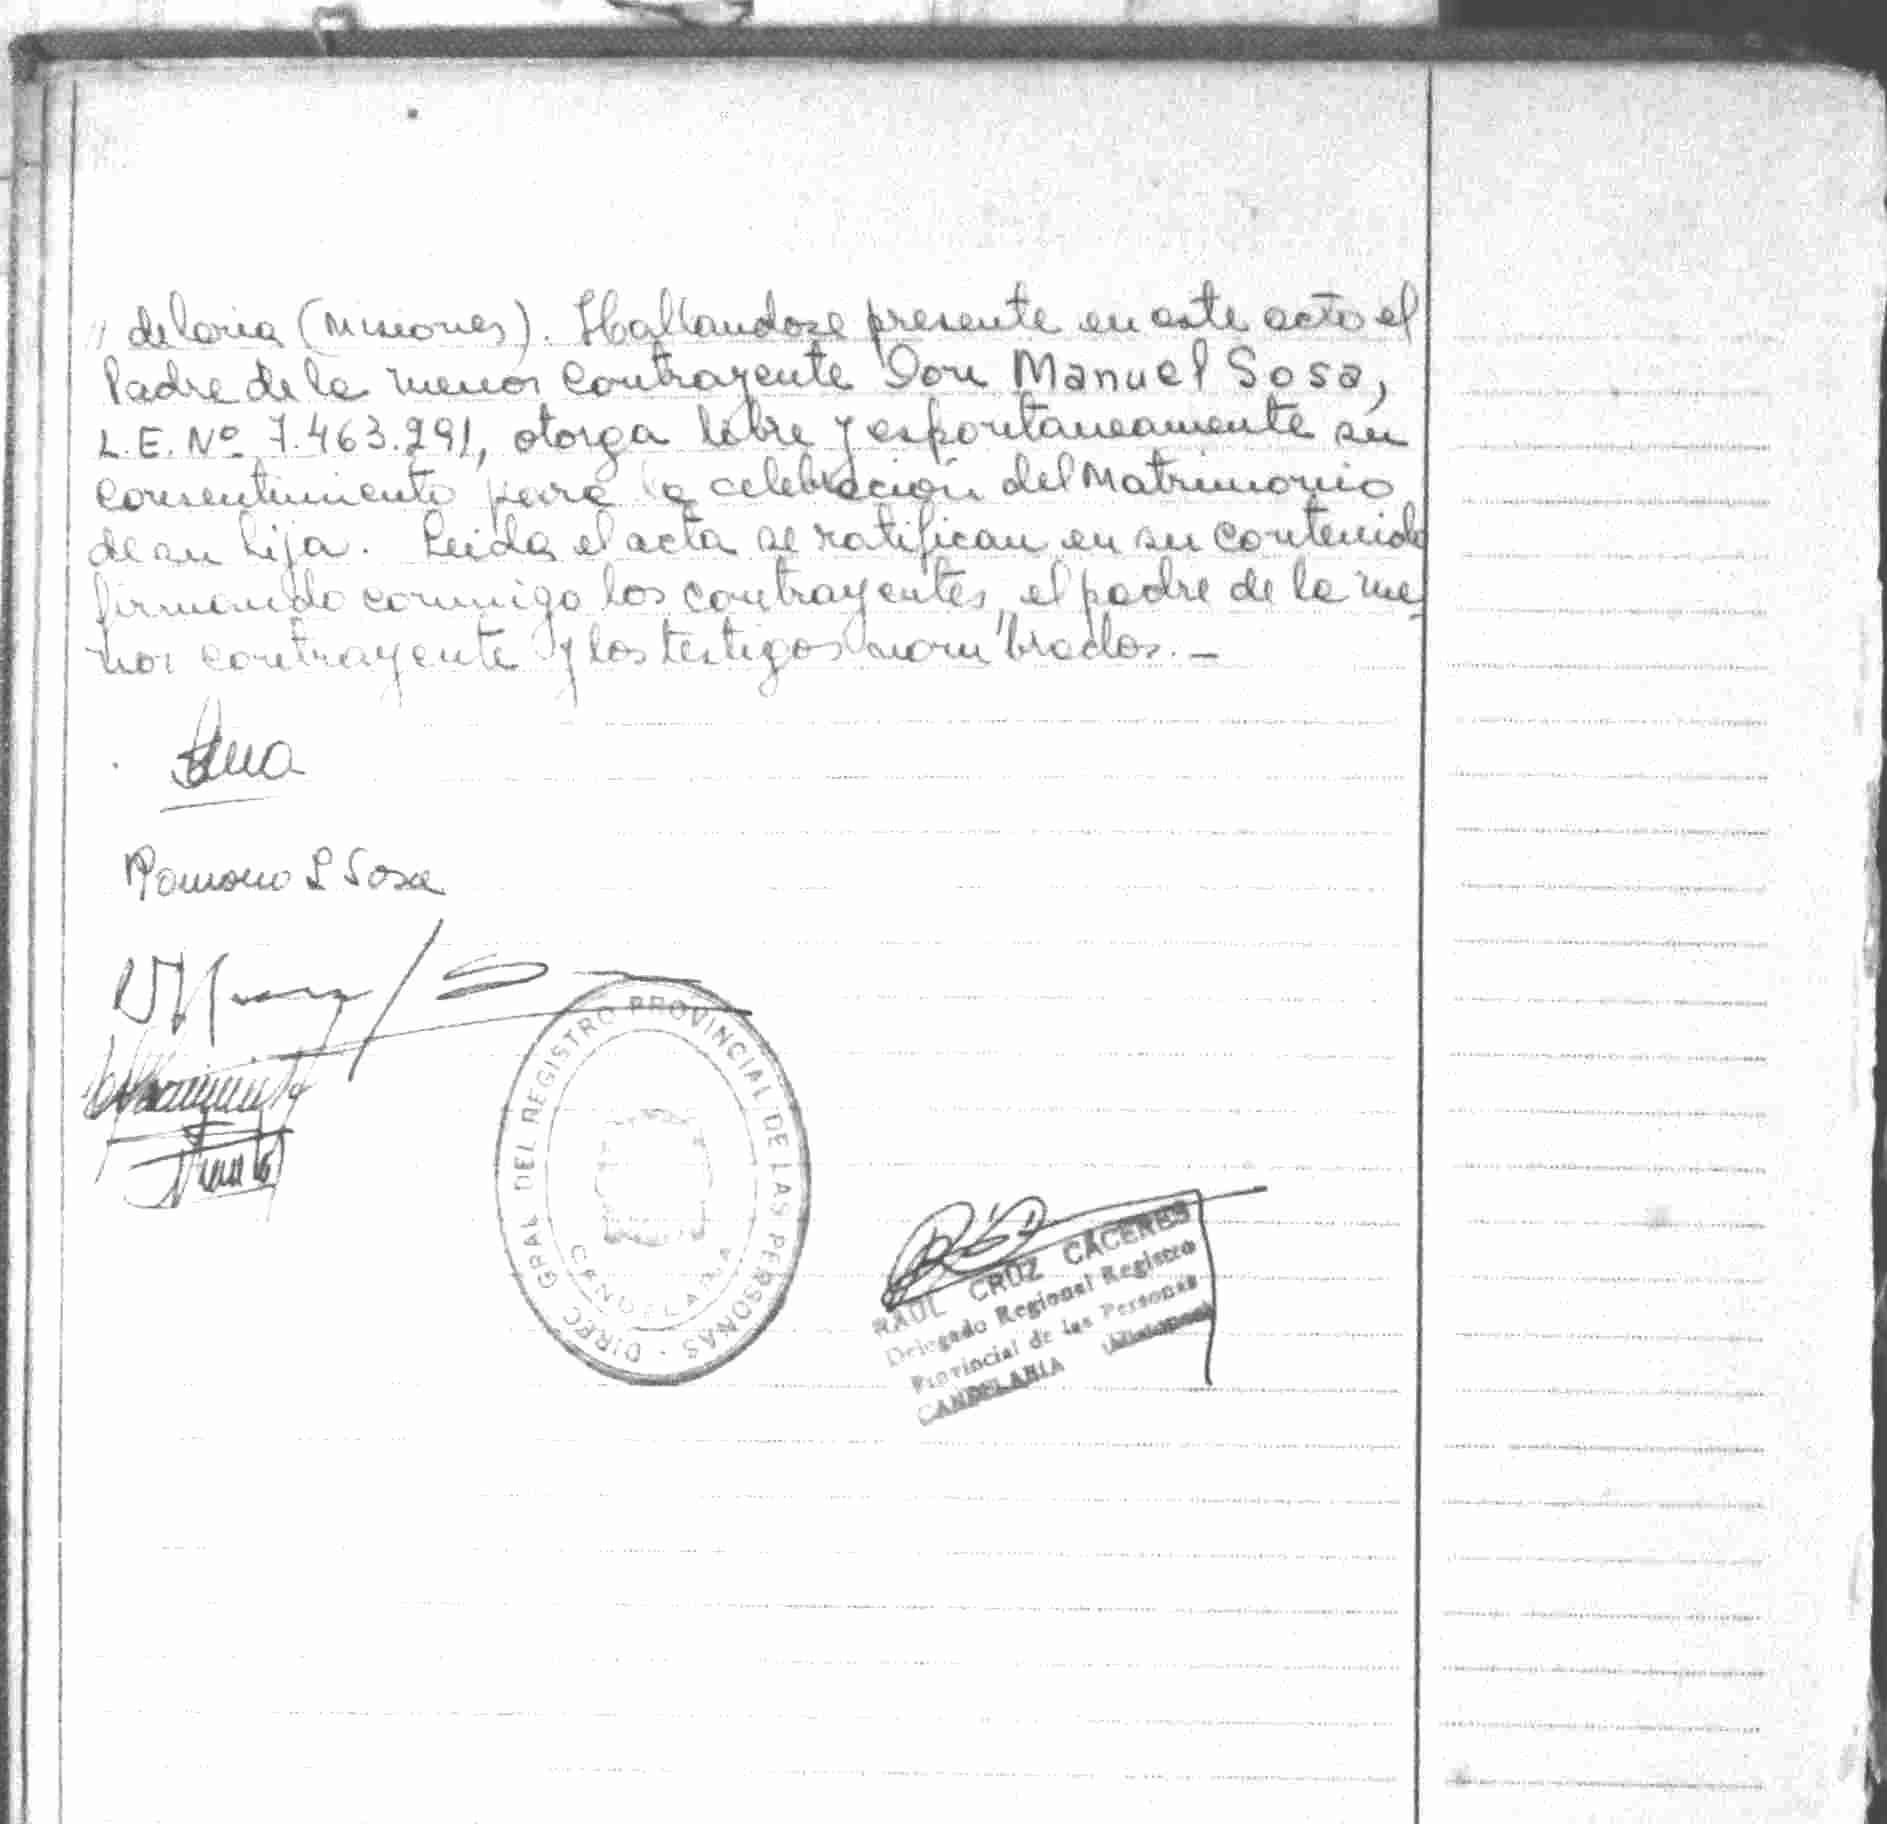 " delaria (Misiones). Hallandose presente en este acto el
Padre de la menor contrayente Don Manuel Sosa,
L.E. Nº 7.463.291, otorga libre y espontaneamente su
consentimiento para la celebración del Matrimonio
de su hija. Leida el acta se ratifican en su contenido
firmando conmigo los contrayentes, el padre de la me-
nor contrayente y los testigos nombrados. —
Sosa
DIREC GRAL DEL REGISTRO PROVINCIAL DE LAS PERSONAS -
CANDELARIA
RAUL CRUZ CACERES
Delegado Regional Registro
Provincial de las Personas
CANDELARIA